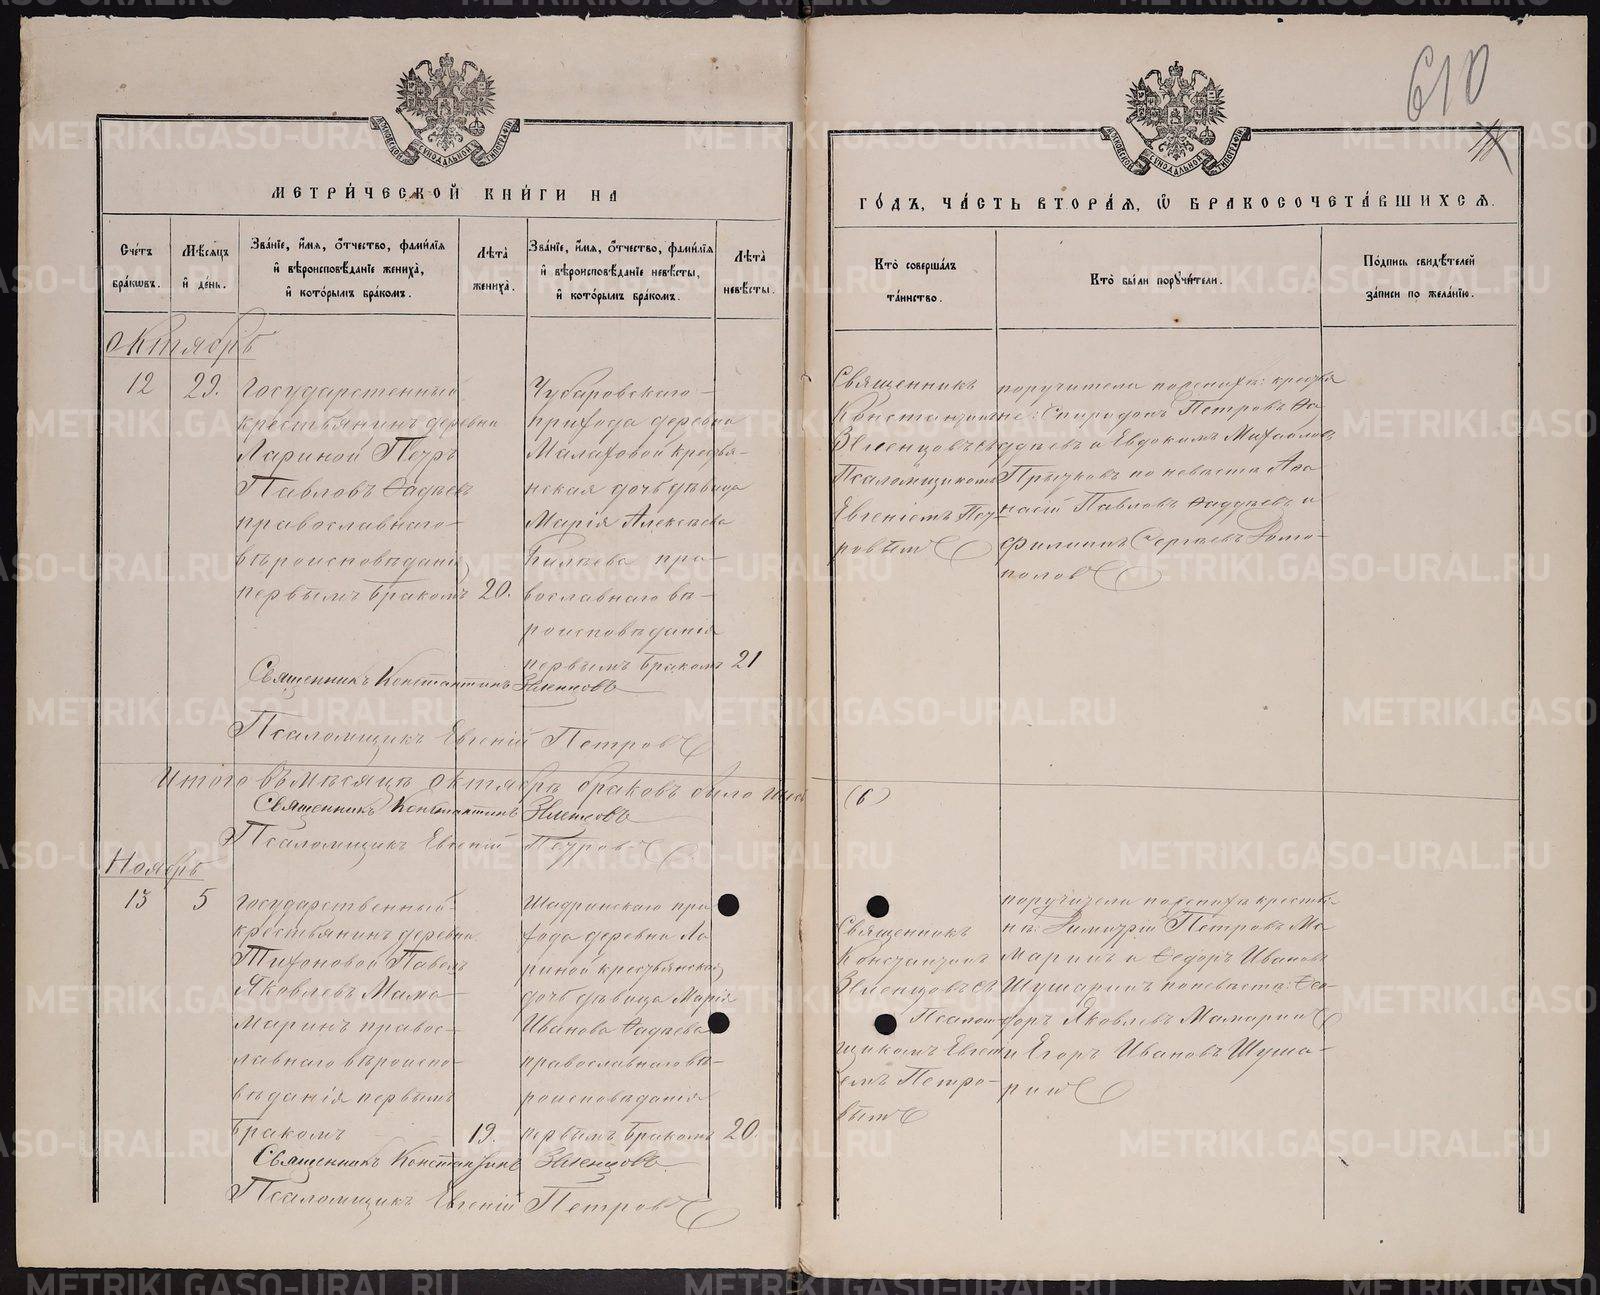 610
МЕТРИ́ЧЕСКОЙ КНИ́ГИ НА
ГО́ДЪ, ЧА́СТЬ ВТОРА́Я, Ѡ҆ БРАКОСОЧЕТА́ВШИХСЯ.
Сче́тъ бра́ковъ.
Мѣ́сяцъ и҆ де́нь.
Зва́нїе, и҆́мя, ѻ҆́тчество, фами́лїя
и҆ вѣроисповѣ́данїе жениха̀,
и҆ кото́рымъ бра́комъ.
Лѣ́та жениха̀.
Зва́нїе, и҆́мя, ѻ҆́тчество, фами́лїя
и҆ вѣроисповѣ́данїе невѣ́сты,
и҆ кото́рымъ бра́комъ.
Лѣ́та невѣ́сты.
Кто̀ соверша́лъ та́инство.
Кто̀ бы́ли поручи́тели.
По́дпись свидѣ́телей за́писи по жела́нїю.
Октябрь
12
29.
Государственный
крестьянинъ деревни
Лариной Петръ
Павловъ Ѳадѣевъ
православнаго
вѣроисповѣданія
первымъ бракомъ
20.
Чубаровскаго
прихода деревни
Малаховой кресть-
янская дочь дѣвица
Марія Алексѣева
пра-
вославнаго вѣ-
роисповѣданія
первымъ бракомъ
21
Священникъ
Константинъ
Зеленцовъ съ
Псаломщикомъ
Евгеніемъ Пет-
ровым
поручители по женихѣ: крестья
не: Спиридонъ Петровъ Ѳа
дѣевъ и Евдокимъ Михайловъ
по невѣстѣ Аѳа
насій Павловъ Ѳаддѣевъ и
Филиппъ Сергѣевъ
Священникъ Константинъ Зеленцовъ
Псаломщикъ Евгеній Петровъ
Итого въ мѣсяцѣ октябрѣ браковъ было шесть (6)
Священникъ Константинъ Зеленцовъ
Псаломщикъ Евгеній Петровъ
Ноябрь
13
5
Государственный
крестьянинъ деревни
Тихоновой Павелъ
Яковлевъ Мама-
маринъ правос-
лавнаго вѣроиспо-
вѣданія первымъ
бракомъ
19.
Шадринскаго при
хода деревни Ла
риной крестьянская
дочь дѣвица Марія
Иванова Ѳадѣева
православнаго вѣ-
роисповѣданія
первымъ бракомъ
20.
Священникъ
Константинъ
Зеленцовъ съ
Псалом-
щикомъ Евгені
емъ Петро-
вым
поручители по женихѣ крестья
не: Димитрій Петровъ Ма
маринъ и Ѳедоръ Ивановъ
Шушаринъ по невѣстѣ: Ѳео-
доръ Яковлевъ Мамарин
и Егоръ Ивановъ Шуша-
рин
Священникъ Константинъ Зеленцовъ
Псаломщикъ Евгеній Петровъ
METRIKI.GASO-URAL.RU